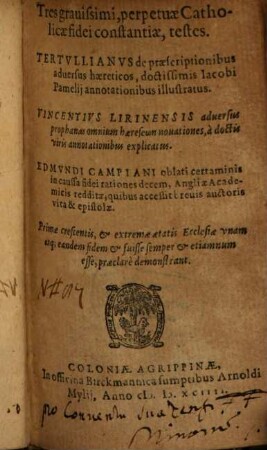 Tres grauissimi, perpetuæ Catho-
licæ fidei constantiæ, testes.
TERTVLLIANVS de præscriptionibus
aduersus hæreticos, doctissimis Iacobi
Pamelij annotationibus illustratus.
VINCENTIVS LIRINENSIS aduersus
prophanas omnium hæreseωn nouationes, à doctis
viris annotationibus explicatus.
EDMVNDI CAMPIANI oblati certaminis
in caussa fidei rationes decem, Angliæ Acade-
micis redditæ, quibus accessit breuis auctoris
vita & epistolæ.
Primæ crescentis, & extremæ ætatis Ecclesiæ vnam
atq; eandem fidem & fuisse semper & etiamnum
esse, præclarè demonstrant.
COLONIAE AGRIPPINAE,
In officina Birckmannica sumptibus Arnoldi
Mylij, Anno
pro Conuentu
Minorum